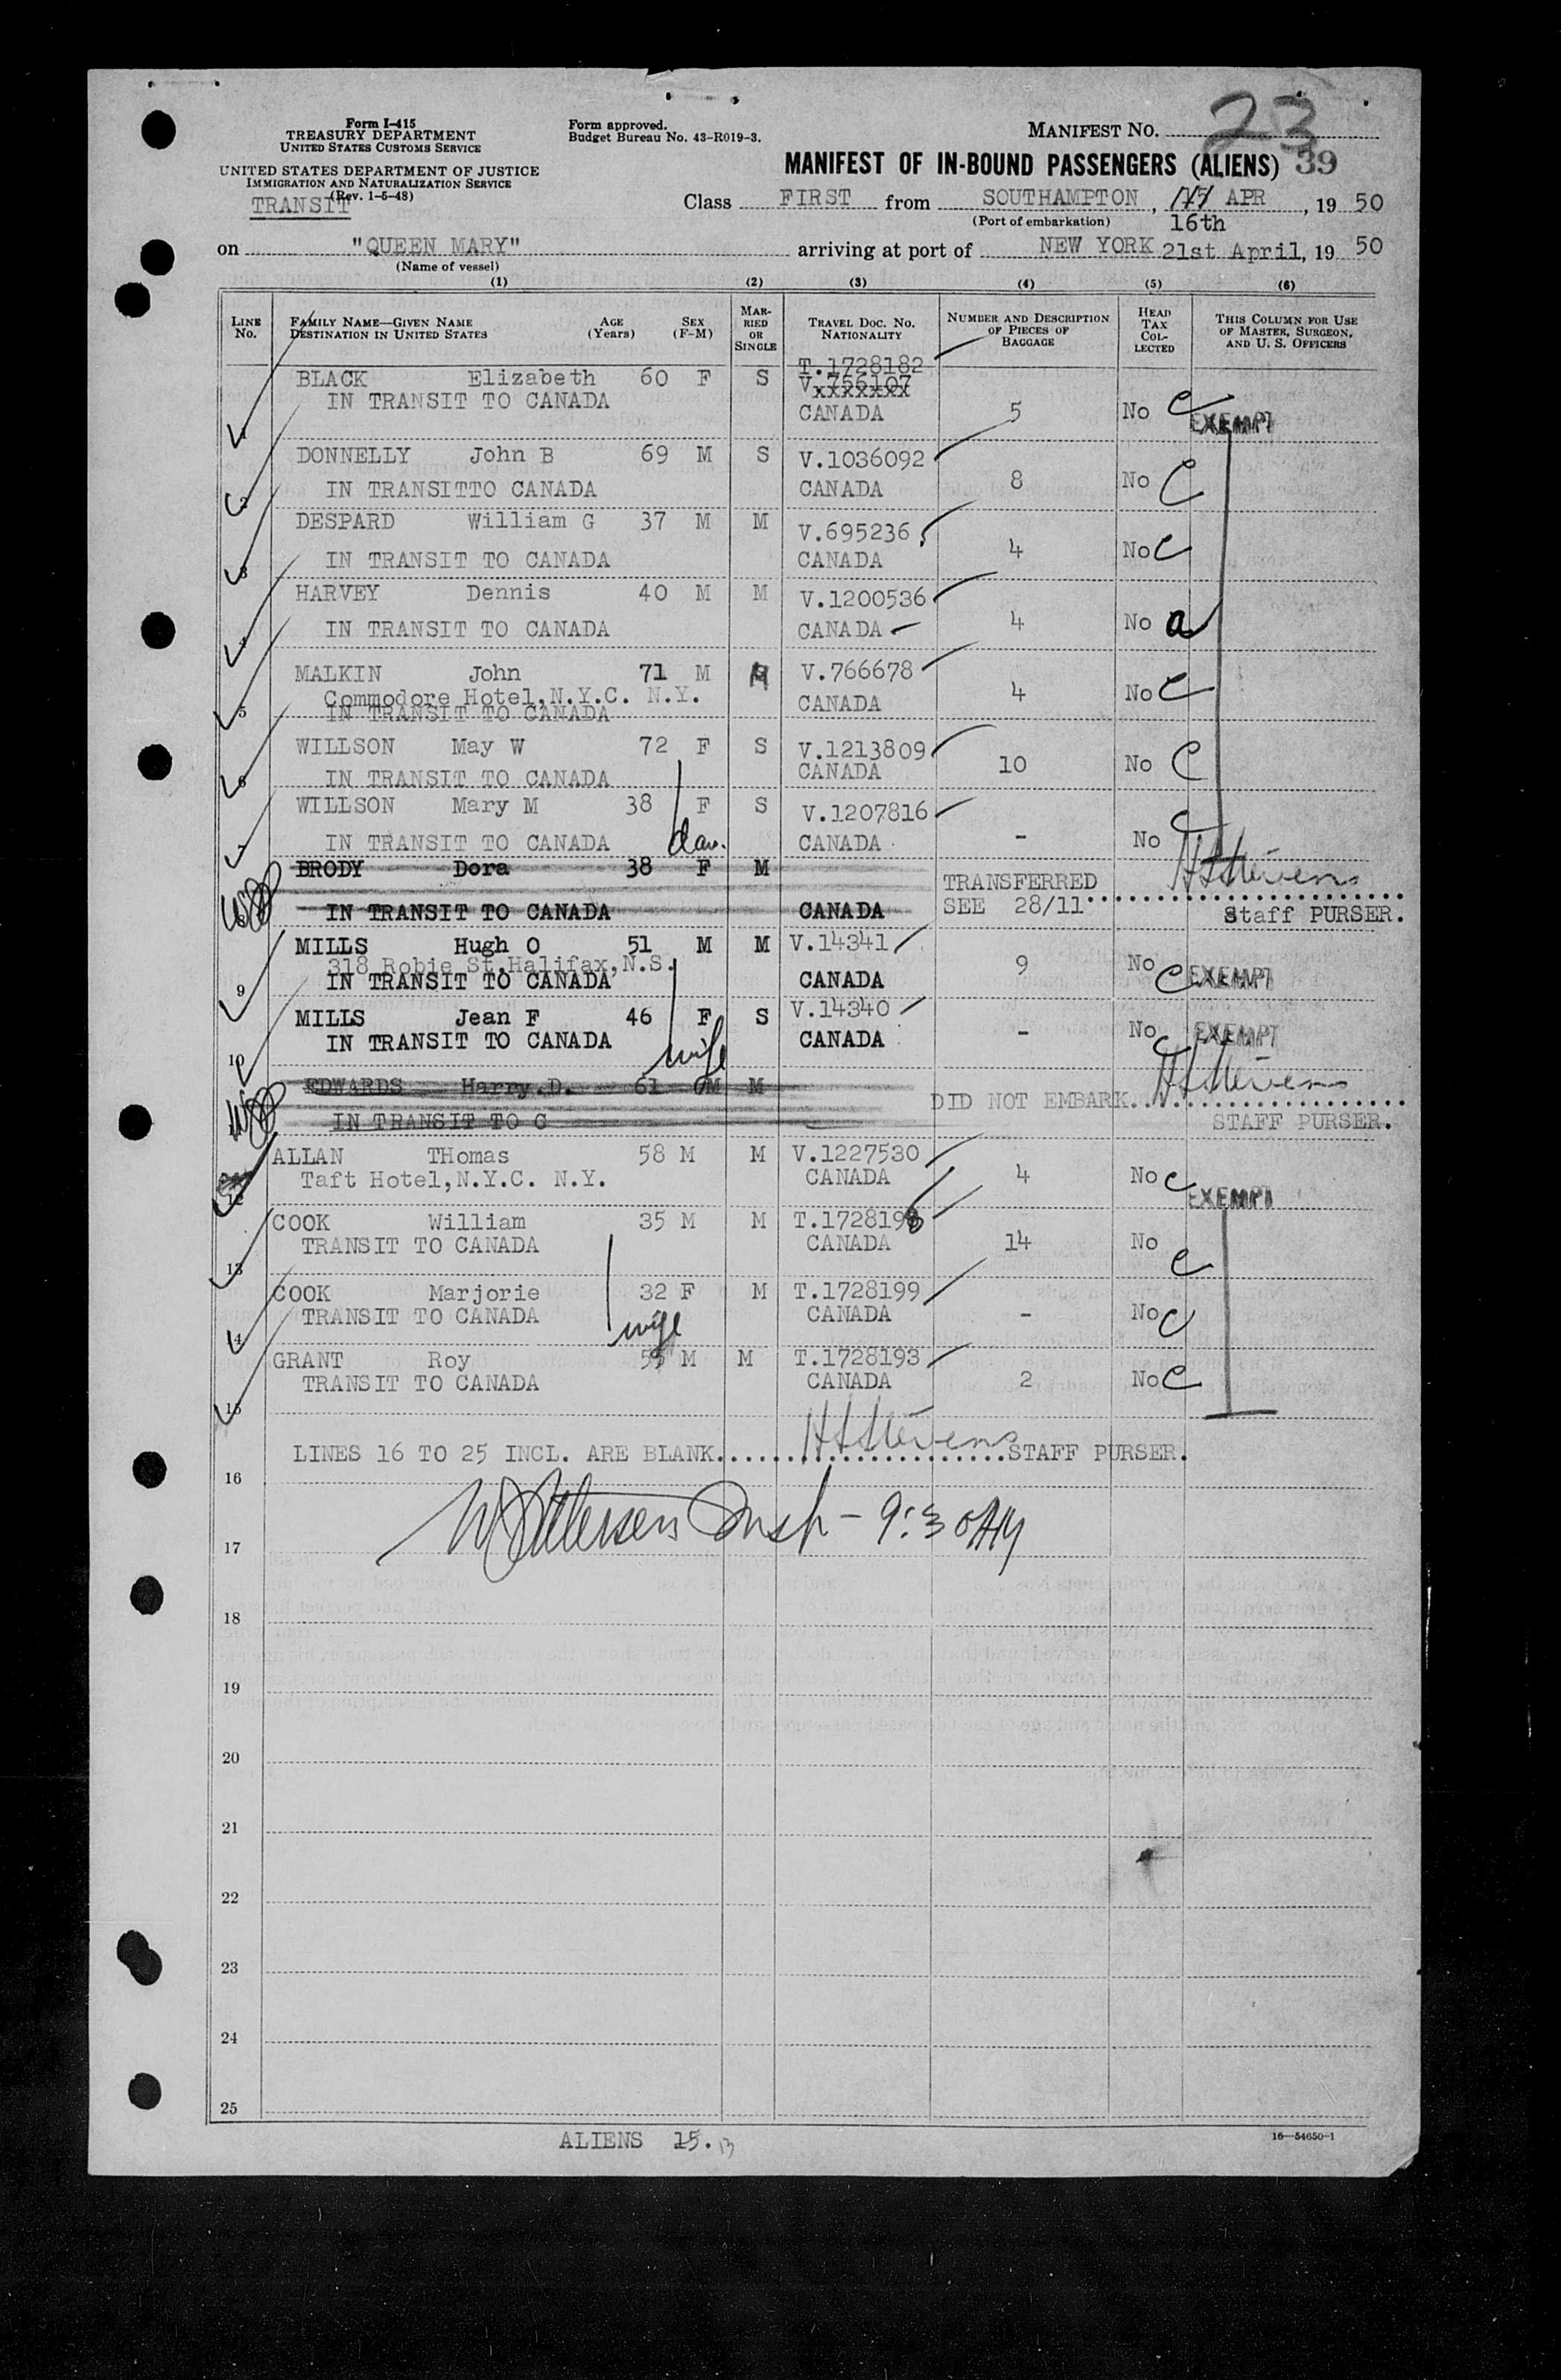 23
Form I-415
TREASURY DEPARTMENT
UNITED STATES CUSTOMS SERVICE
Form approved.
Budget Bureau No. 43-R019-3.
MANIFEST NO.
UNITED STATES DEPARTMENT OF JUSTICE
IMMIGRATION AND NATURALIZATION SERVICE
(Rev. 1-5-48)
TRANSIT
MANIFEST OF IN-BOUND PASSENGERS (ALIENS) 39
Class FIRST from SOUTHAMPTON, APR, 19 50
(Port of embarkation) 16th
on "QUEEN MARY" arriving at port of NEW YORK 21st April, 19 50
(Name of vessel)
(1) (2) (3) (4) (5) (6)
LINE No. FAMILY NAME—GIVEN NAME DESTINATION IN UNITED STATES AGE (Years) SEX (F-M) MARRIED OR SINGLE TRAVEL DOC. NO. NATIONALITY NUMBER AND DESCRIPTION OF PIECES OF BAGGAGE HEAD TAX COLLECTED THIS COLUMN FOR USE OF MASTER, SURGEON, AND U. S. OFFICERS
T.1728182
1 BLACK Elizabeth 60 F S V.756107 xxxxxxx
IN TRANSIT TO CANADA CANADA 5 No C EXEMPT
2 DONNELLY John B 69 M S V.1036092
IN TRANSITTO CANADA CANADA 8 No C
3 DESPARD William G 37 M M V.695236
IN TRANSIT TO CANADA CANADA 4 No C
4 HARVEY Dennis 40 M M V.1200536
IN TRANSIT TO CANADA CANADA 4 No a
5 MALKIN John 71 M M V.766678
Commodore Hotel,N.Y.C. N.Y. 4 No C
IN TRANSIT TO CANADA CANADA
6 WILLSON May W 72 F S V.1213809
IN TRANSIT TO CANADA CANADA 10 No C
7 WILLSON Mary M 38 F S V.1207816
IN TRANSIT TO CANADA dau. CANADA - No C
BRODY Dora 38 F M
TRANSFERRED H Stevens
IN TRANSIT TO CANADA CANADA SEE 28/11 Staff PURSER.
9 MILLS Hugh O 51 M M V.14341
318 Robie St.Halifax,N.S. 9 No C EXEMPT
IN TRANSIT TO CANADA CANADA
10 MILLS Jean F 46 F S V.14340
IN TRANSIT TO CANADA wife CANADA - No C EXEMPT
EDWARDS Harry.D. 61 M M
DID NOT EMBARK. H Stevens
IN TRANSIT TO C STAFF PURSER.
12 ALLAN THomas 58 M M V.1227530
Taft Hotel,N.Y.C. N.Y. CANADA 4 No C EXEMPT
13 COOK William 35 M M T.1728198
TRANSIT TO CANADA CANADA 14 No C
14 COOK Marjorie 32 F M T.1728199
TRANSIT TO CANADA wife CANADA - No C
15 GRANT Roy M M T.1728193
TRANSIT TO CANADA CANADA 2 No C
LINES 16 TO 25 INCL. ARE BLANK. H Stevens STAFF PURSER.
16
17 Insp - 9:30 AM
18
19
20
21
22
23
24
25
ALIENS 15. 13
16—54650-1